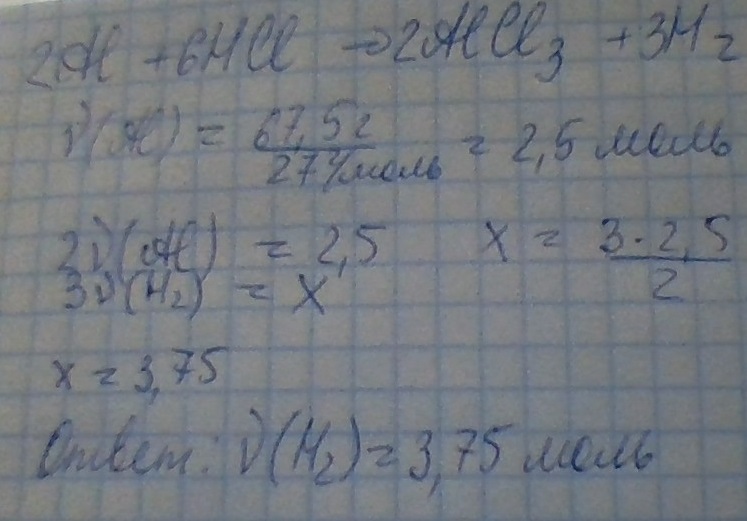 2Al + 6HCl → 2AlCl₃ + 3H₂
ν(Al) = 67,5г / 27 г/моль = 2,5 моль
2ν(Al) = 2,5 x = 3·2,5 / 2
3ν(H₂) = x
x = 3,75
Ответ: ν(H₂) = 3,75 моль